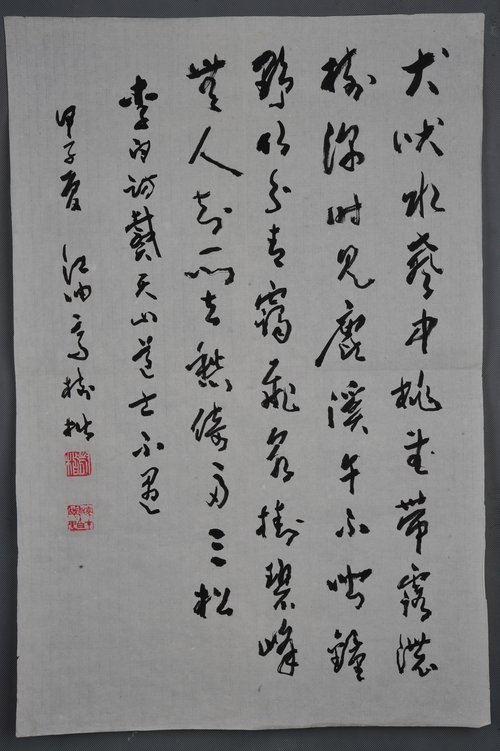 犬吠水聲中桃花帶露濃
樹深时見鹿溪午不闻鐘
野竹分青靄飛泉掛碧峰
無人知所去愁倚两三松
李白詩戴天山道士不遇
甲子夏 江油高樹